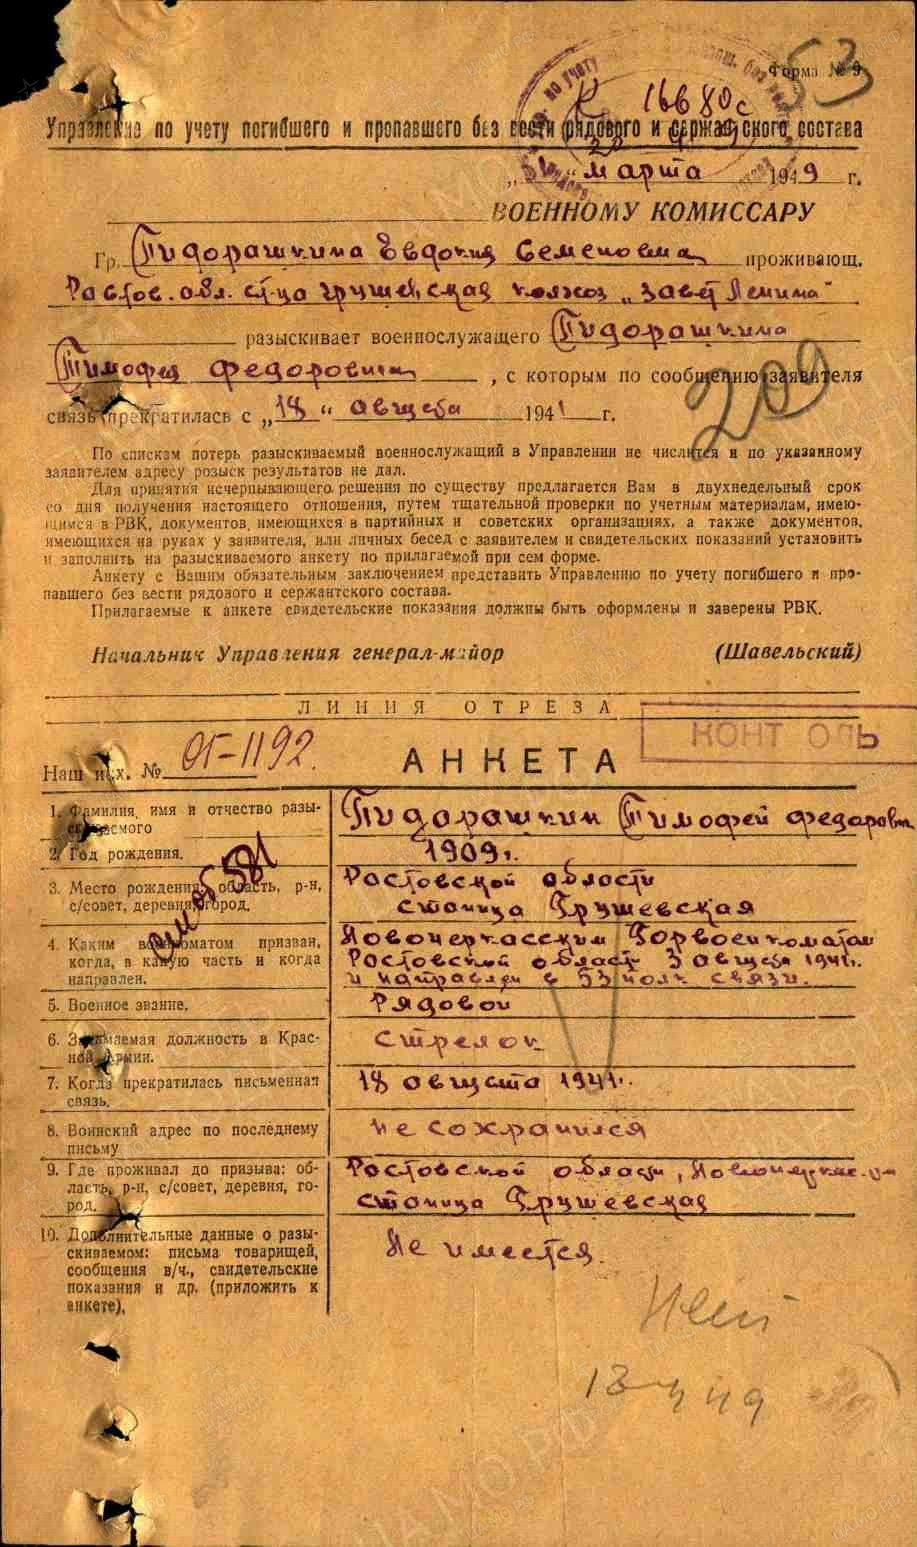 53
Форма № 9
К 16680с
Управление по учету погибшего и пропавшего без вести рядового и сержантского состава
„ “ марта 1949 г.
ВОЕННОМУ КОМИССАРУ
Гр. Пидорашкина Евдокия Семеновна проживающ.
Ростов. обл. ст-ца Грушевская колхоз „Завет Ленина“
разыскивает военнослужащего Пидорашкина
Тимофея Федоровича, с которым по сообщению заявителя
связь прекратилась с „18“ августа 1941 г.
209
По спискам потерь разыскиваемый военнослужащий в Управлении не числится и по указанному
заявителем адресу розыск результатов не дал.
Для принятия исчерпывающего решения по существу предлагается Вам в двухнедельный срок
со дня получения настоящего отношения, путем тщательной проверки по учетным материалам, имею-
щимся в РВК, документов, имеющихся в партийных и советских организациях, а также документов,
имеющихся на руках у заявителя, или личных бесед с заявителем и свидетельских показаний установить
и заполнить на разыскиваемого анкету по прилагаемой при сем форме.
Анкету с Вашим обязательным заключением представить Управлению по учету погибшего и про-
павшего без вести рядового и сержантского состава.
Прилагаемые к анкете свидетельские показания должны быть оформлены и заверены РВК.
Начальник Управления генерал-майор (Шавельский)
ЛИНИЯ ОТРЕЗА
КОНТ ОЛЬ
Наш исх. № 05-1192.
АНКЕТА
1. Фамилия, имя и отчество разы-
скиваемого
Пидорашкин Тимофей Федорович
2. Год рождения.
1909г.
3. Место рождения, область, р-н,
с/совет, деревня, город.
Ростовской области
станица Грушевская
4. Каким военкоматом призван,
когда, в какую часть и когда
направлен.
Новочеркасским Горвоенкоматом
Ростовской област 3 августа 1941г.
и направлен в 53 полк связи.
5. Военное звание.
Рядовой
6. Занимаемая должность в Крас-
ной Армии.
стрелок
7. Когда прекратилась письменная
связь.
18 августа 1941г.
8. Воинский адрес по последнему
письму
не сохранился
9. Где проживал до призыва: об-
ласть, р-н, с/совет, деревня, го-
род.
Ростовской области,
станица Грушевская
10. Дополнительные данные о разы-
скиваемом: письма товарищей,
сообщения в/ч., свидетельские
показания и др. (приложить к
анкете).
Не имеется.